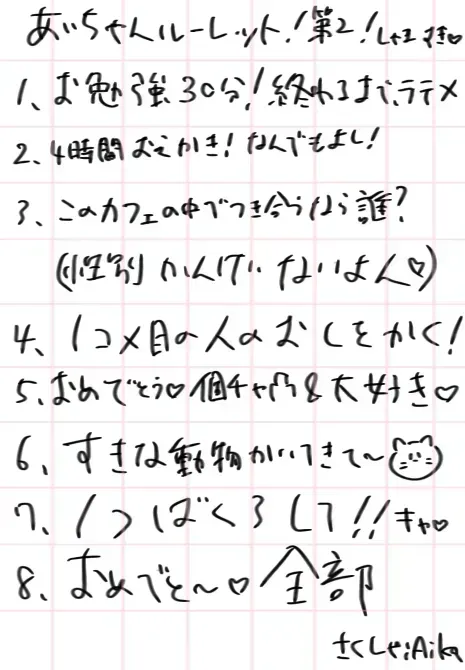 あいちゃんルーレット!第2!しゃまずき♡
1、お勉強30分!終わるまで、ラテメ
2、4時間おえかき!なんでもよし!
3、このカフェの中でつき合うなら誰?
(性別かんけいないよん♡)
4、1コメ目の人のおしをかく!
5、おめでとう♡個チャ凸&大好き♡
6、すきな動物かいてきて〜
7、1つばくろして!!キャ♡
8、おめでと〜♡全部
さくしゃ:Aika